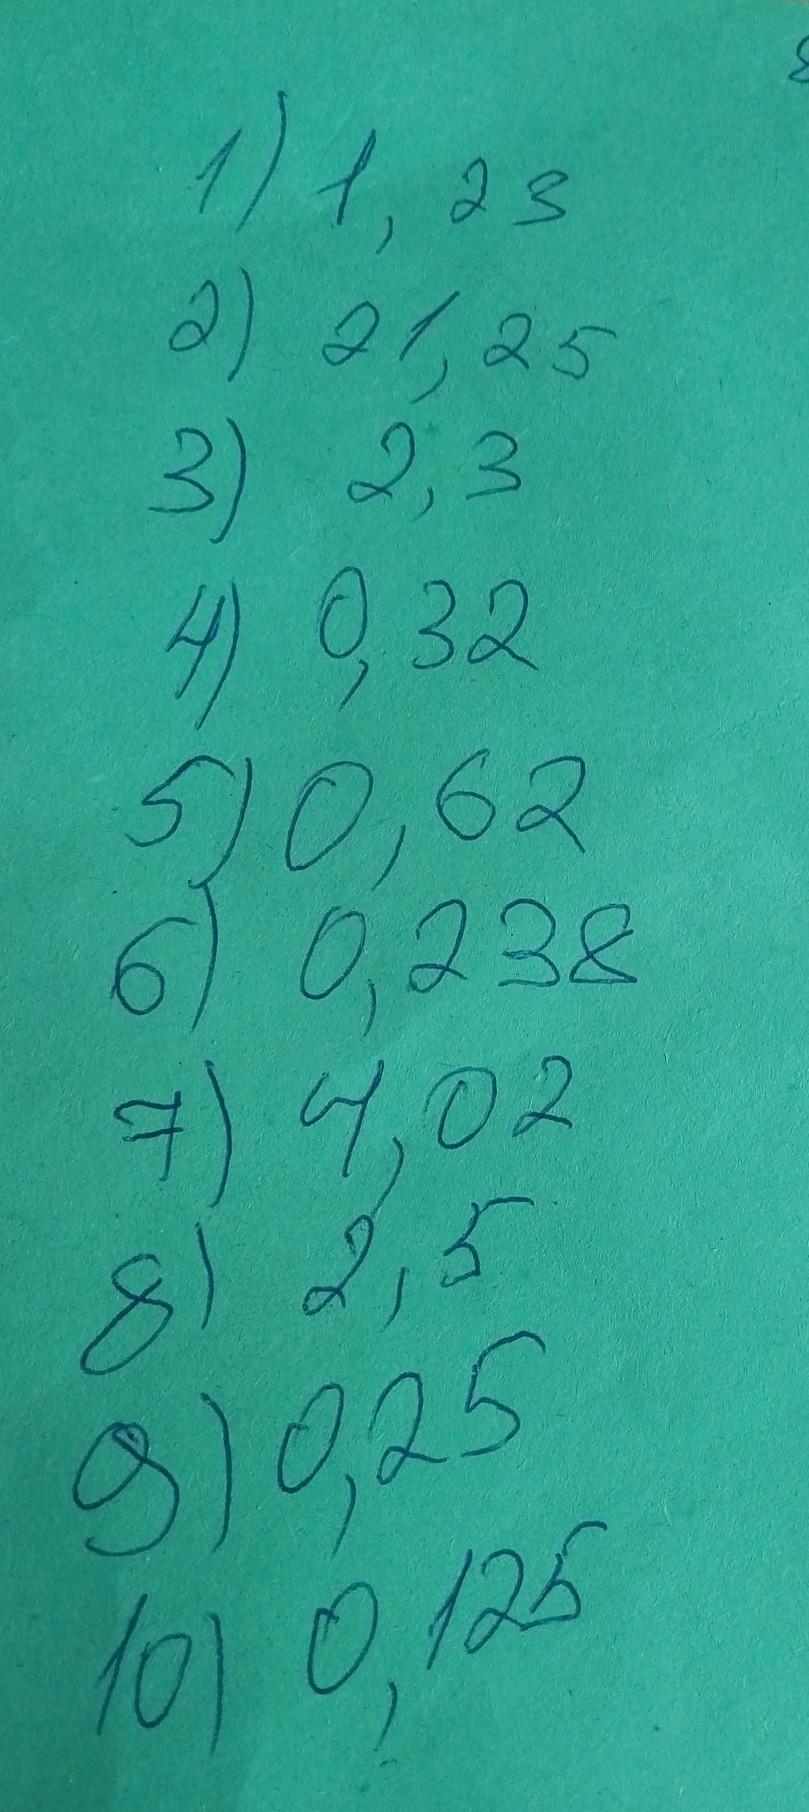 1) 1,23
2) 21,25
3) 2,3
4) 0,32
5) 0,62
6) 0,238
7) 4,02
8) 2,5
9) 0,25
10) 0,125